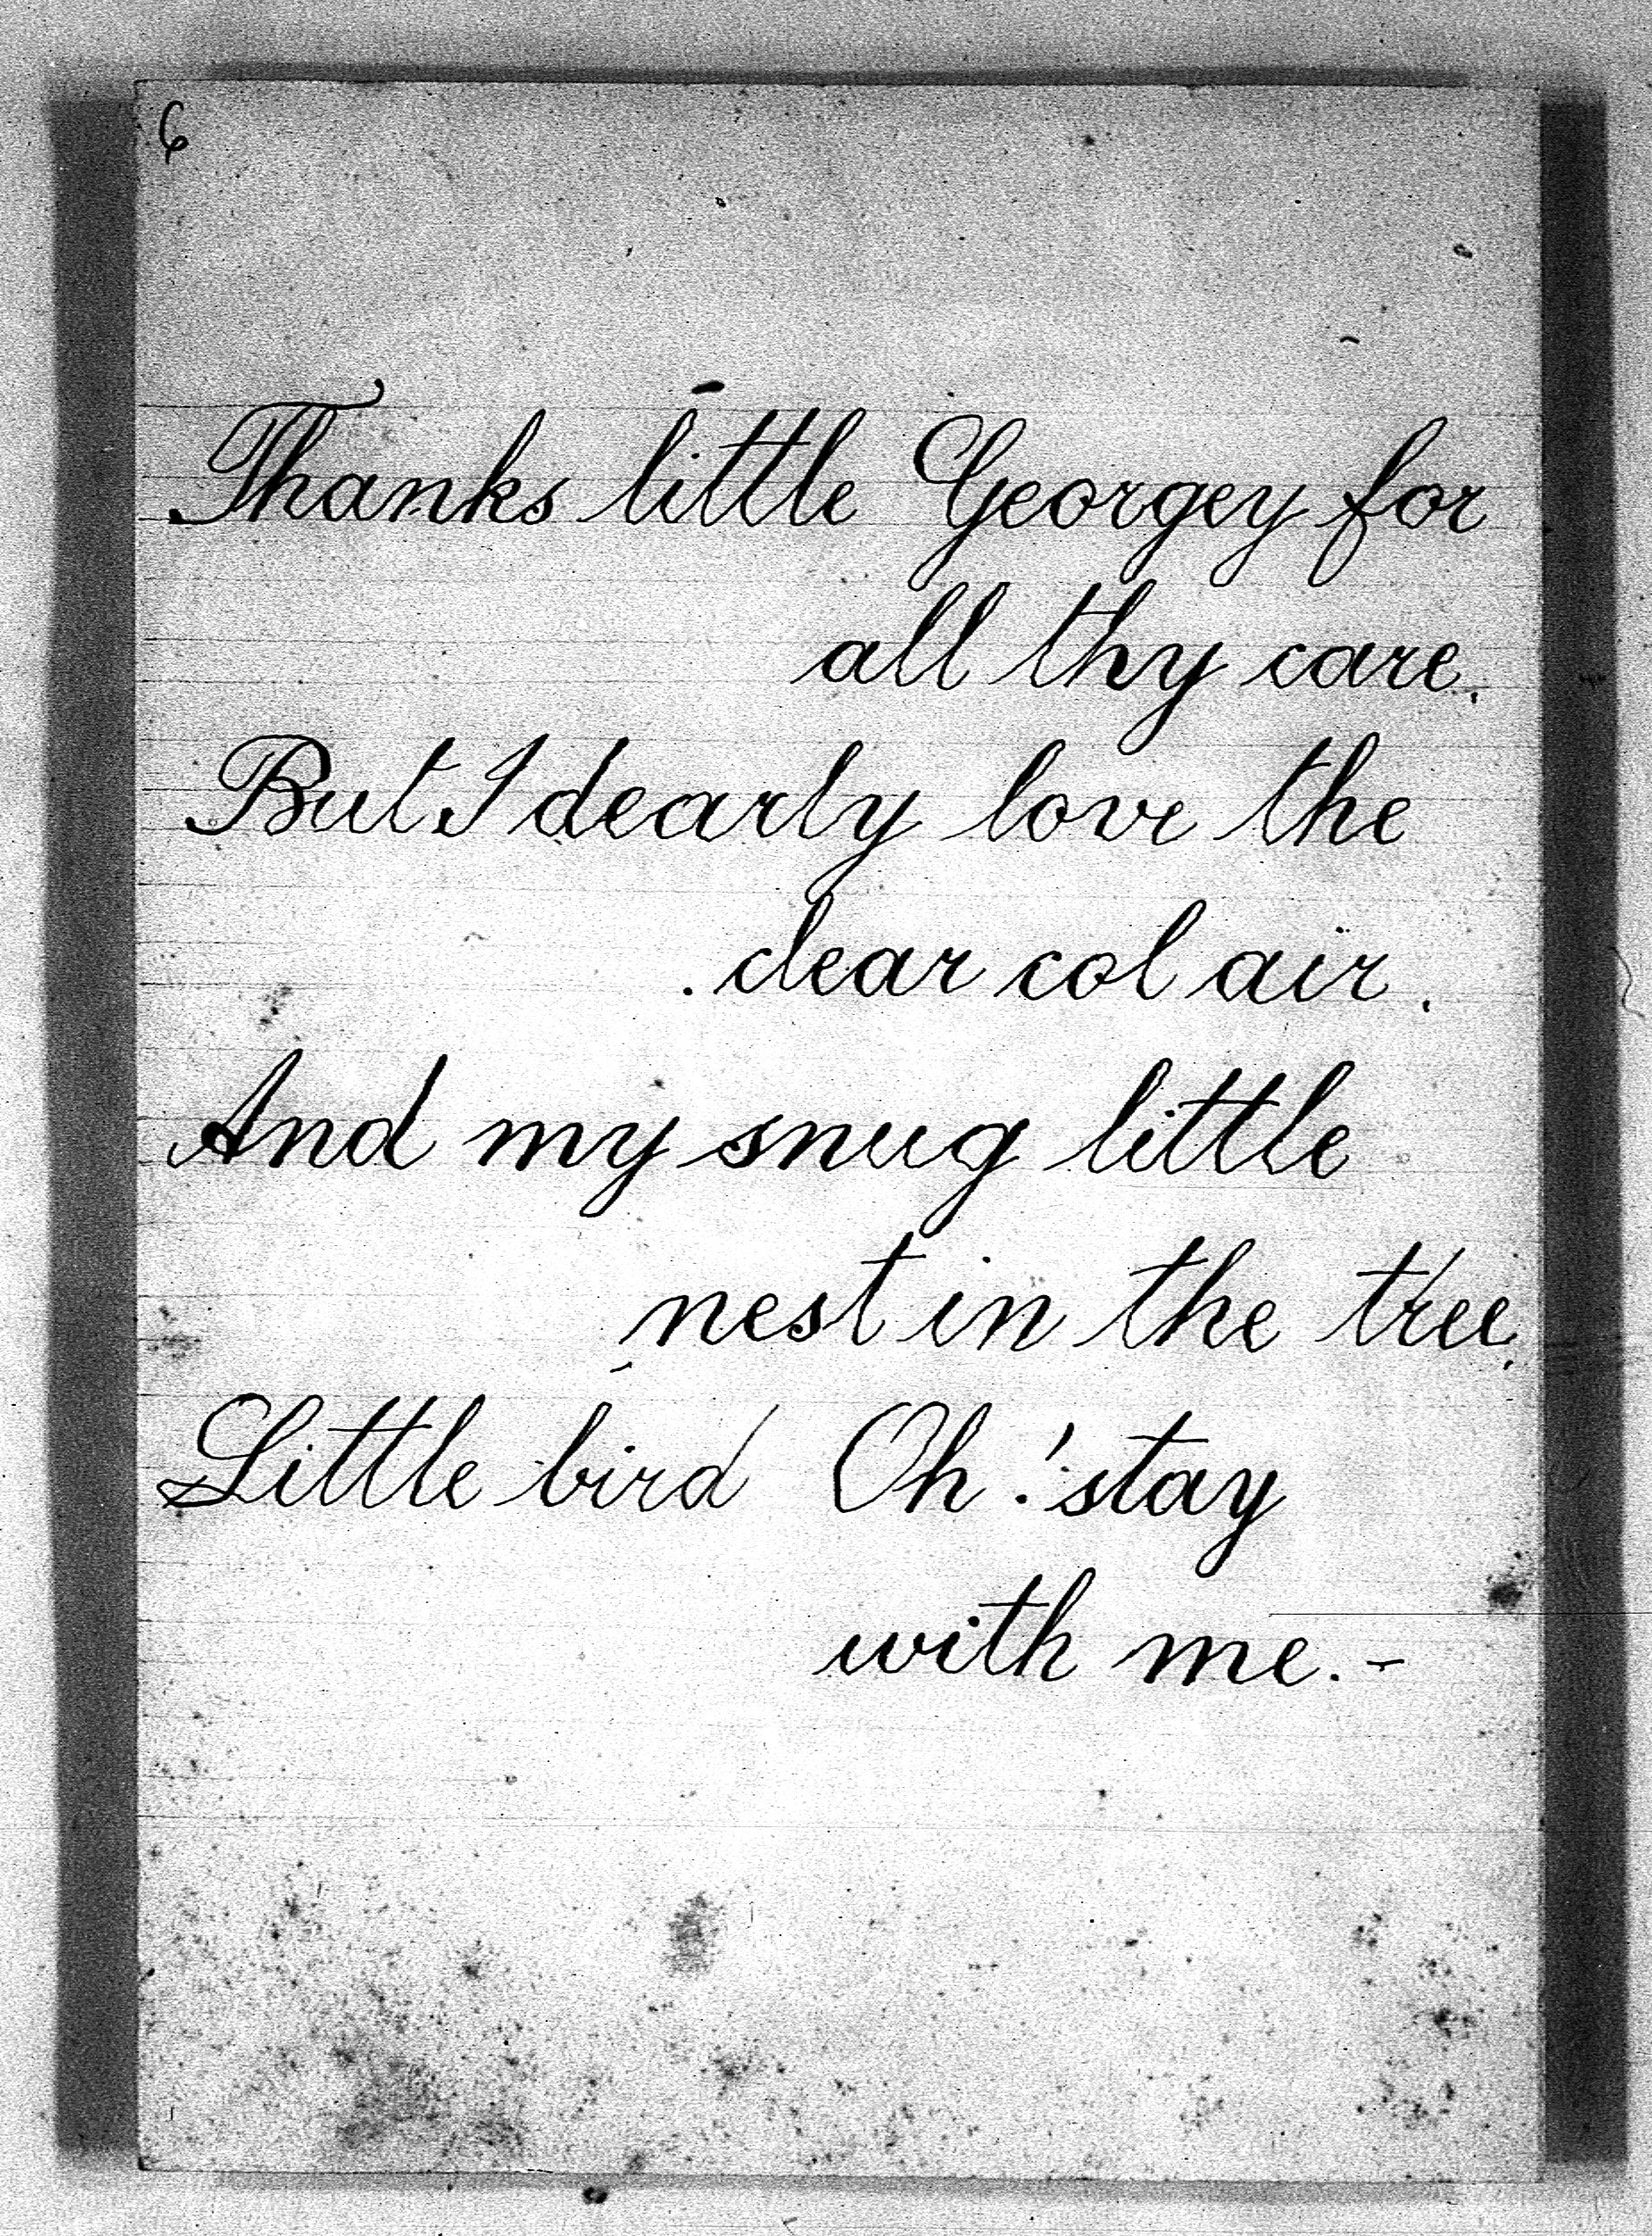 6
Thanks little Georgey for
all thy care.
But I dearly love the
clear col air.
And my snug little
nest in the tree.
Little bird Oh! stay
with me.-